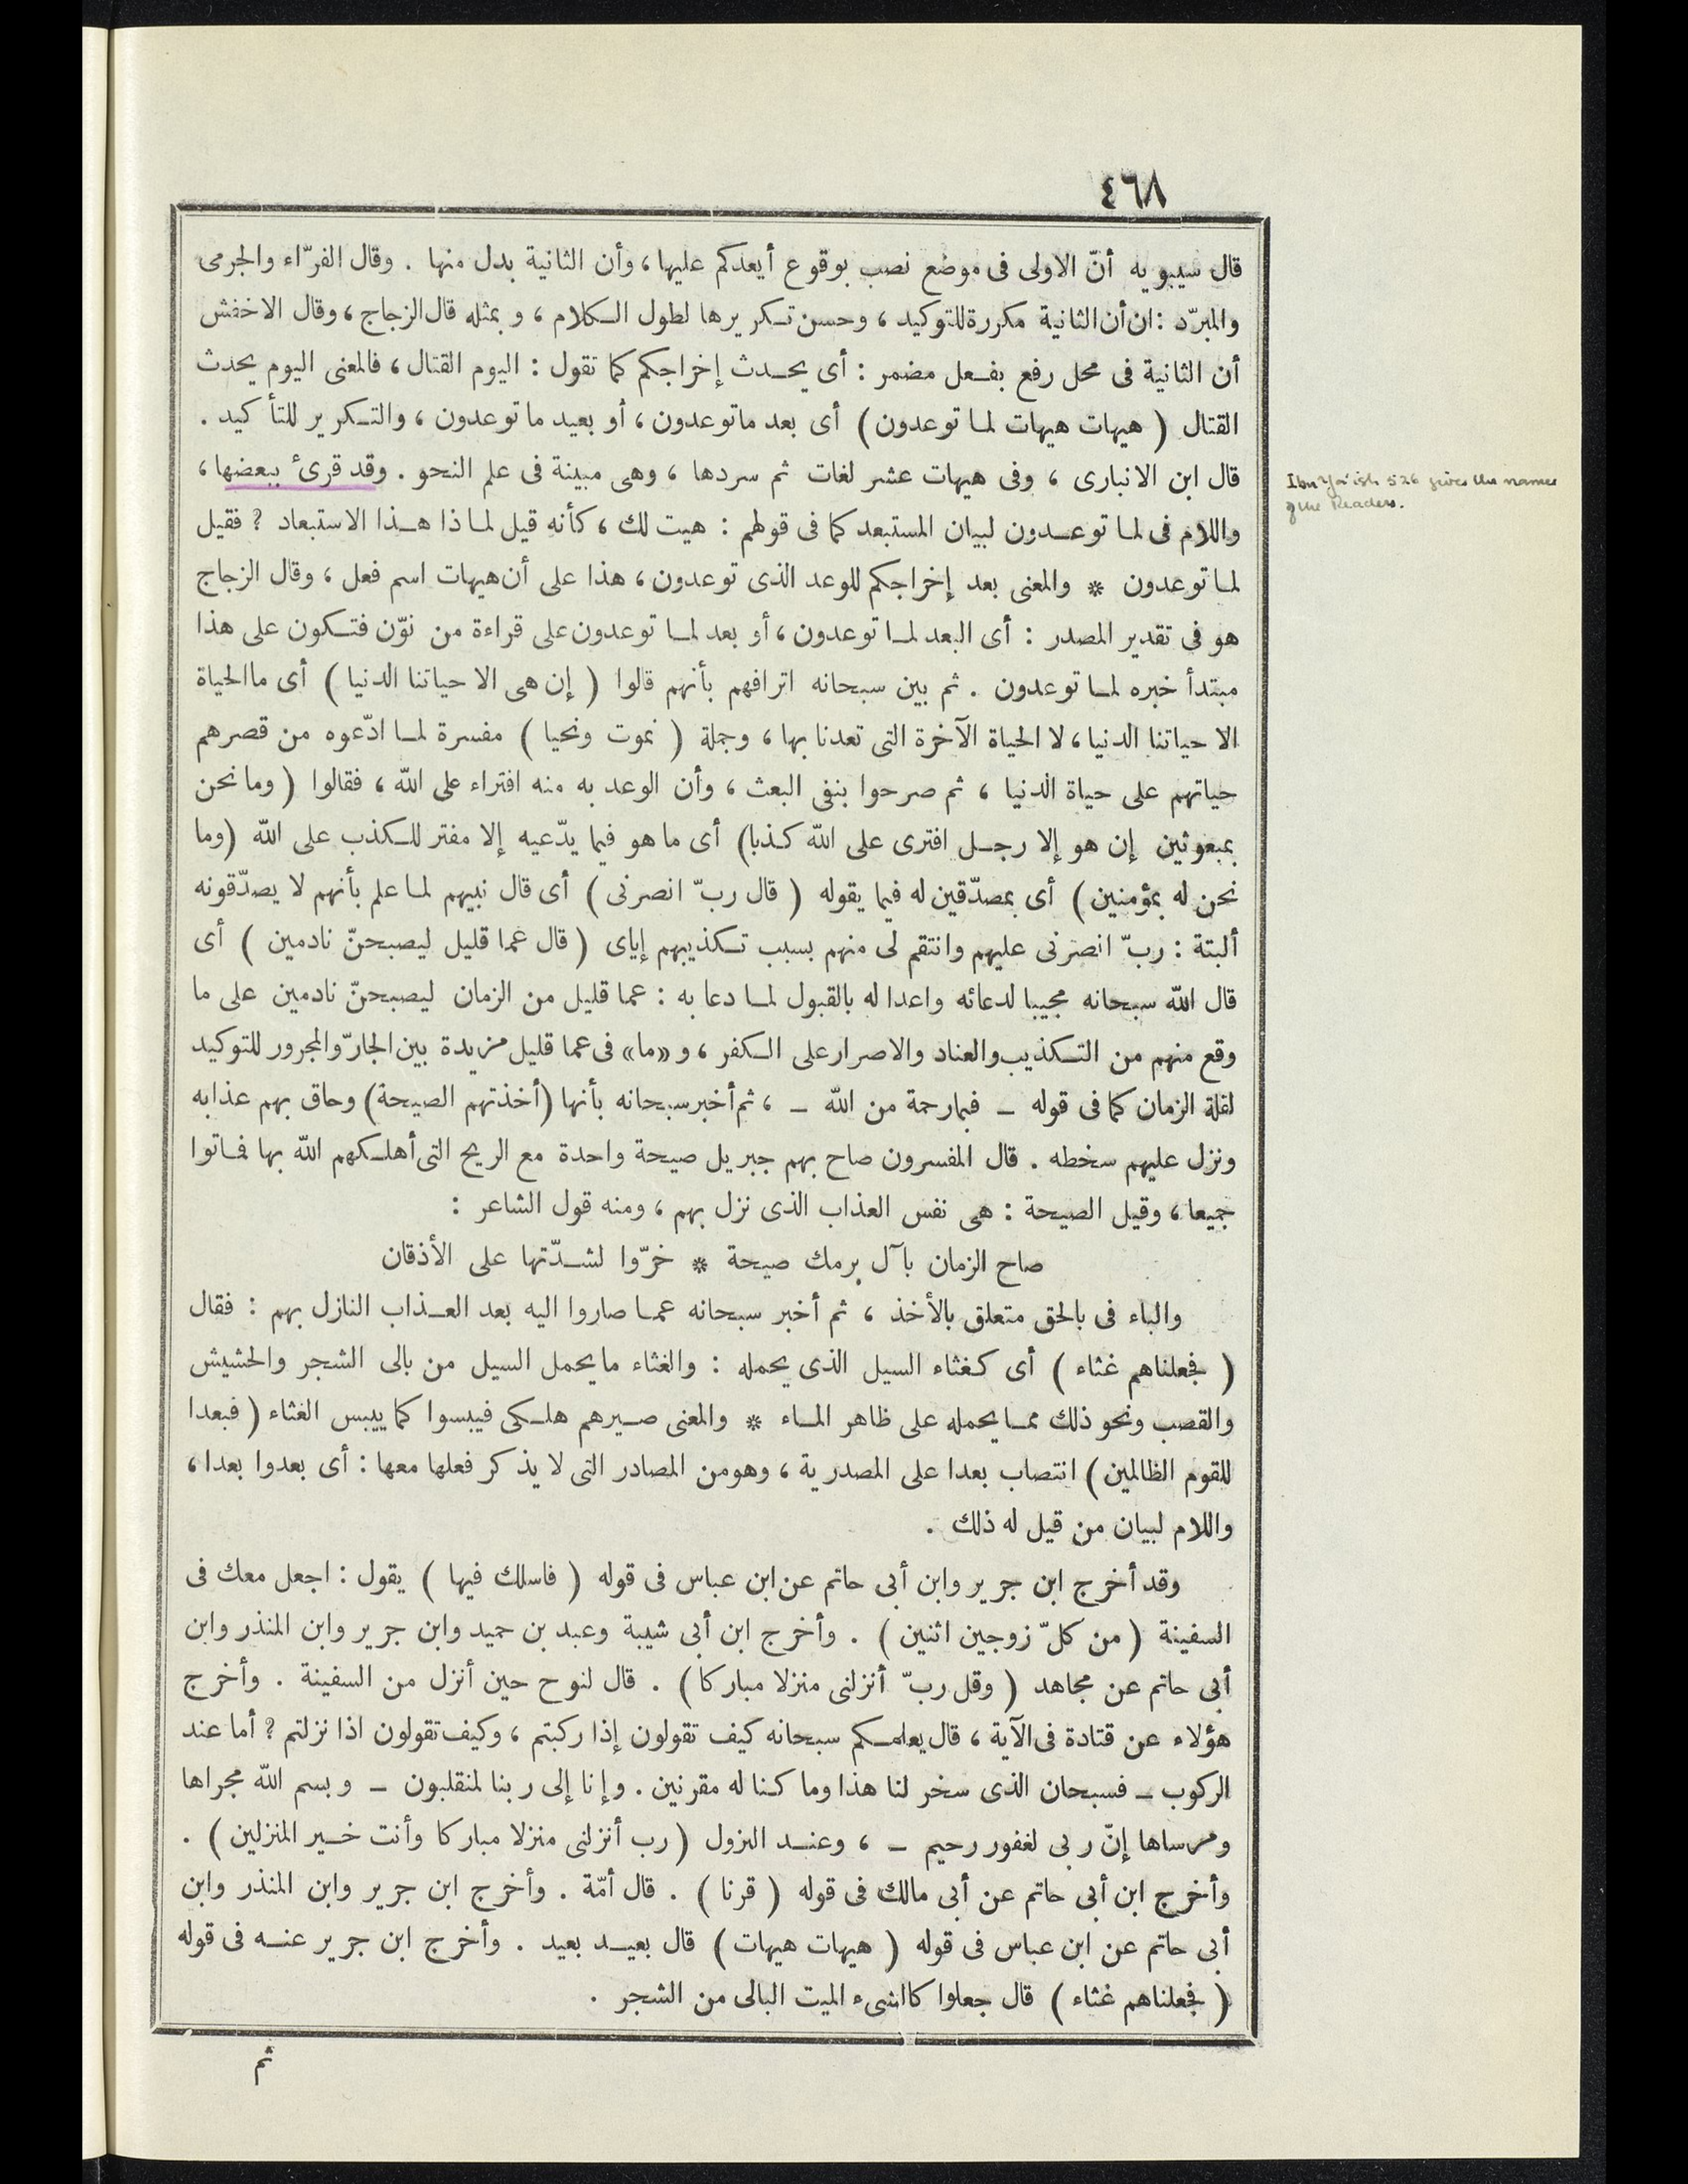 ٤٦٨
قال سيبويه أنّ الاولى فى موضع نصب بوقوع أيعدكم عليها ، وأن الثانية بدل منها . وقال الفرّاء والجرمى
والمبرّد : ان أن الثانية مكررة للتوكيد ، وحسن تكريرها لطول الكلام ، وبمثله قال الزجاج ، وقال الاخفش
أن الثانية فى محل رفع بفعل مضمر : أى يحدث إخراجكم كما تقول : اليوم القتال ، فالمعنى اليوم يحدث
القتال ( هيهات هيهات لما توعدون ) أى بعد ماتوعدون ، أو بعيد ما توعدون ، والتكرير للتأكيد .
قال ابن الانبارى ، وفى هيهات عشر لغات ثم سردها ، وهى مبينة فى علم النحو . وقد قرئ ببعضها ،
Ibn Ya'ish 526 gives the names
of the Readers.
واللام فى لما توعدون لبيان المستبعد كما فى قولهم : هيت لك ، كأنه قيل لماذا هذا الاستبعاد ? فقيل
لما توعدون * والمعنى بعد إخراجكم للوعد الذى توعدون ، هذا على أن هيهات اسم فعل ، وقال الزجاج
هو فى تقدير المصدر : أى البعد لما توعدون ، أو بعد لما توعدون على قراءة من نوّن فتكون على هذا
مبتدأ خبره لما توعدون . ثم بين سبحانه اترافهم بأنهم قالوا ( إن هى الا حياتنا الدنيا ) أى ماالحياة
الا حياتنا الدنيا ، لا الحياة الآخرة التى تعدنا بها ، وجملة ( نموت ونحيا ) مفسرة لما ادّعوه من قصرهم
حياتهم على حياة الدنيا ، ثم صرحوا بنفى البعث ، وأن الوعد به منه افتراء على الله ، فقالوا ( وما نحن
بمبعوثين إن هو إلا رجل افترى على الله كذبا ) أى ما هو فيما يدّعيه إلا مفتر للكذب على الله ( وما
نحن له بمؤمنين ) أى بمصدّقين له فيما يقوله ( قال ربّ انصرنى ) أى قال نبيهم لما علم بأنهم لا يصدّقونه
ألبتة : ربّ انصرنى عليهم وانتقم لى منهم بسبب تكذيبهم إياى ( قال عما قليل ليصبحنّ نادمين ) أى
قال الله سبحانه مجيبا لدعائه واعدا له بالقبول لما دعا به : عما قليل من الزمان ليصبحنّ نادمين على ما
وقع منهم من التكذيب والعناد والاصرار على الكفر ، و «ما» فى عما قليل مزيدة بين الجارّ والمجرور للتوكيد
لقلة الزمان كما فى قوله – فبمارحمة من الله – ، ثم أخبرسبحانه بأنها ( أخذتهم الصيحة ) وحاق بهم عذابه
ونزل عليهم سخطه . قال المفسرون صاح بهم جبريل صيحة واحدة مع الريح التى أهلكهم الله بها فماتوا
جميعا ، وقيل الصيحة : هى نفس العذاب الذى نزل بهم ، ومنه قول الشاعر :
صاح الزمان بآل برمك صيحة * خرّوا لشدّتها على الأذقان
والباء فى بالحق متعلق بالأخذ ، ثم أخبر سبحانه عما صاروا اليه بعد العذاب النازل بهم : فقال
( فجعلناهم غثاء ) أى كغثاء السيل الذى يحمله : والغثاء مايحمل السيل من بالى الشجر والحشيش
والقصب ونحو ذلك مما يحمله على ظاهر الماء * والمعنى صيرهم هلكى فيبسوا كما ييبس الغثاء ( فبعدا
للقوم الظالمين ) انتصاب بعدا على المصدرية ، وهومن المصادر التى لا يذكر فعلها معها : أى بعدوا بعدا ،
واللام لبيان من قيل له ذلك .
وقد أخرج ابن جرير وابن أبى حاتم عن ابن عباس فى قوله ( فاسلك فيها ) يقول : اجعل معك فى
السفينة ( من كلّ زوجين اثنين ) . وأخرج ابن أبى شيبة وعبد بن حميد وابن جرير وابن المنذر وابن
أبى حاتم عن مجاهد ( وقل ربّ أنزلنى منزلا مباركا ) . قال لنوح حين أنزل من السفينة . وأخرج
هؤلاء عن قتادة فى الآية ، قال يعلمكم سبحانه كيف تقولون إذا ركبتم ، وكيف تقولون اذا نزلتم ? أما عند
الركوب – فسبحان الذى سخر لنا هذا وما كنا له مقرنين . وإنا إلى ربنا لمنقلبون – وبسم الله مجراها
ومرساها إنّ ربى لغفور رحيم – ، وعند النزول ( رب أنزلنى منزلا مباركا وأنت خير المنزلين ) .
وأخرج ابن أبى حاتم عن أبى مالك فى قوله ( قرنا ) . قال أمّة . وأخرج ابن جرير وابن المنذر وابن
أبى حاتم عن ابن عباس فى قوله ( هيهات هيهات ) قال بعيد بعيد . وأخرج ابن جرير عنه فى قوله
( فجعلناهم غثاء ) قال جعلوا كالشىء الميت البالى من الشجر .
ثم